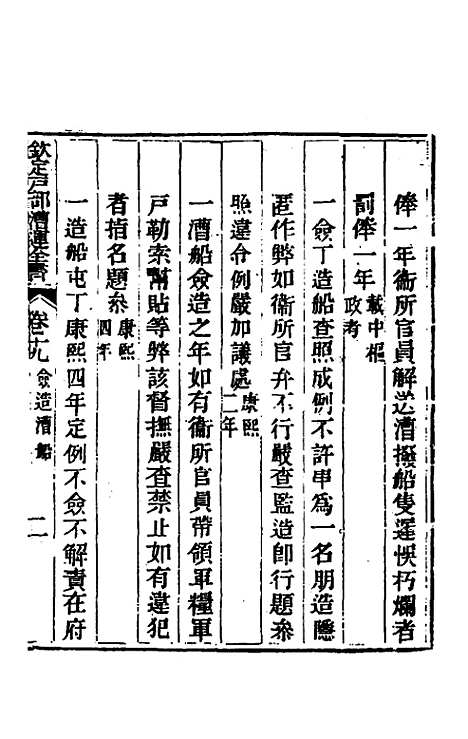 俸一年衞所官員解送漕撥船隻遲悞朽爛者
罰俸一年載中樞政考
一僉丁造船查照成例不許串為一名朋造隱
匿作弊如衞所官弁不行嚴查監造卽行題參
照違令例嚴加議處康熙二年
一漕船僉造之年如有衞所官員帶領軍糧軍
戶勒索幫貼等弊該督撫嚴查禁止如有違犯
者指名題參康熙四年
一造船屯丁康熙四年定例不僉不解責在府
欽定戶部漕運全書 卷十九 僉造漕船 二